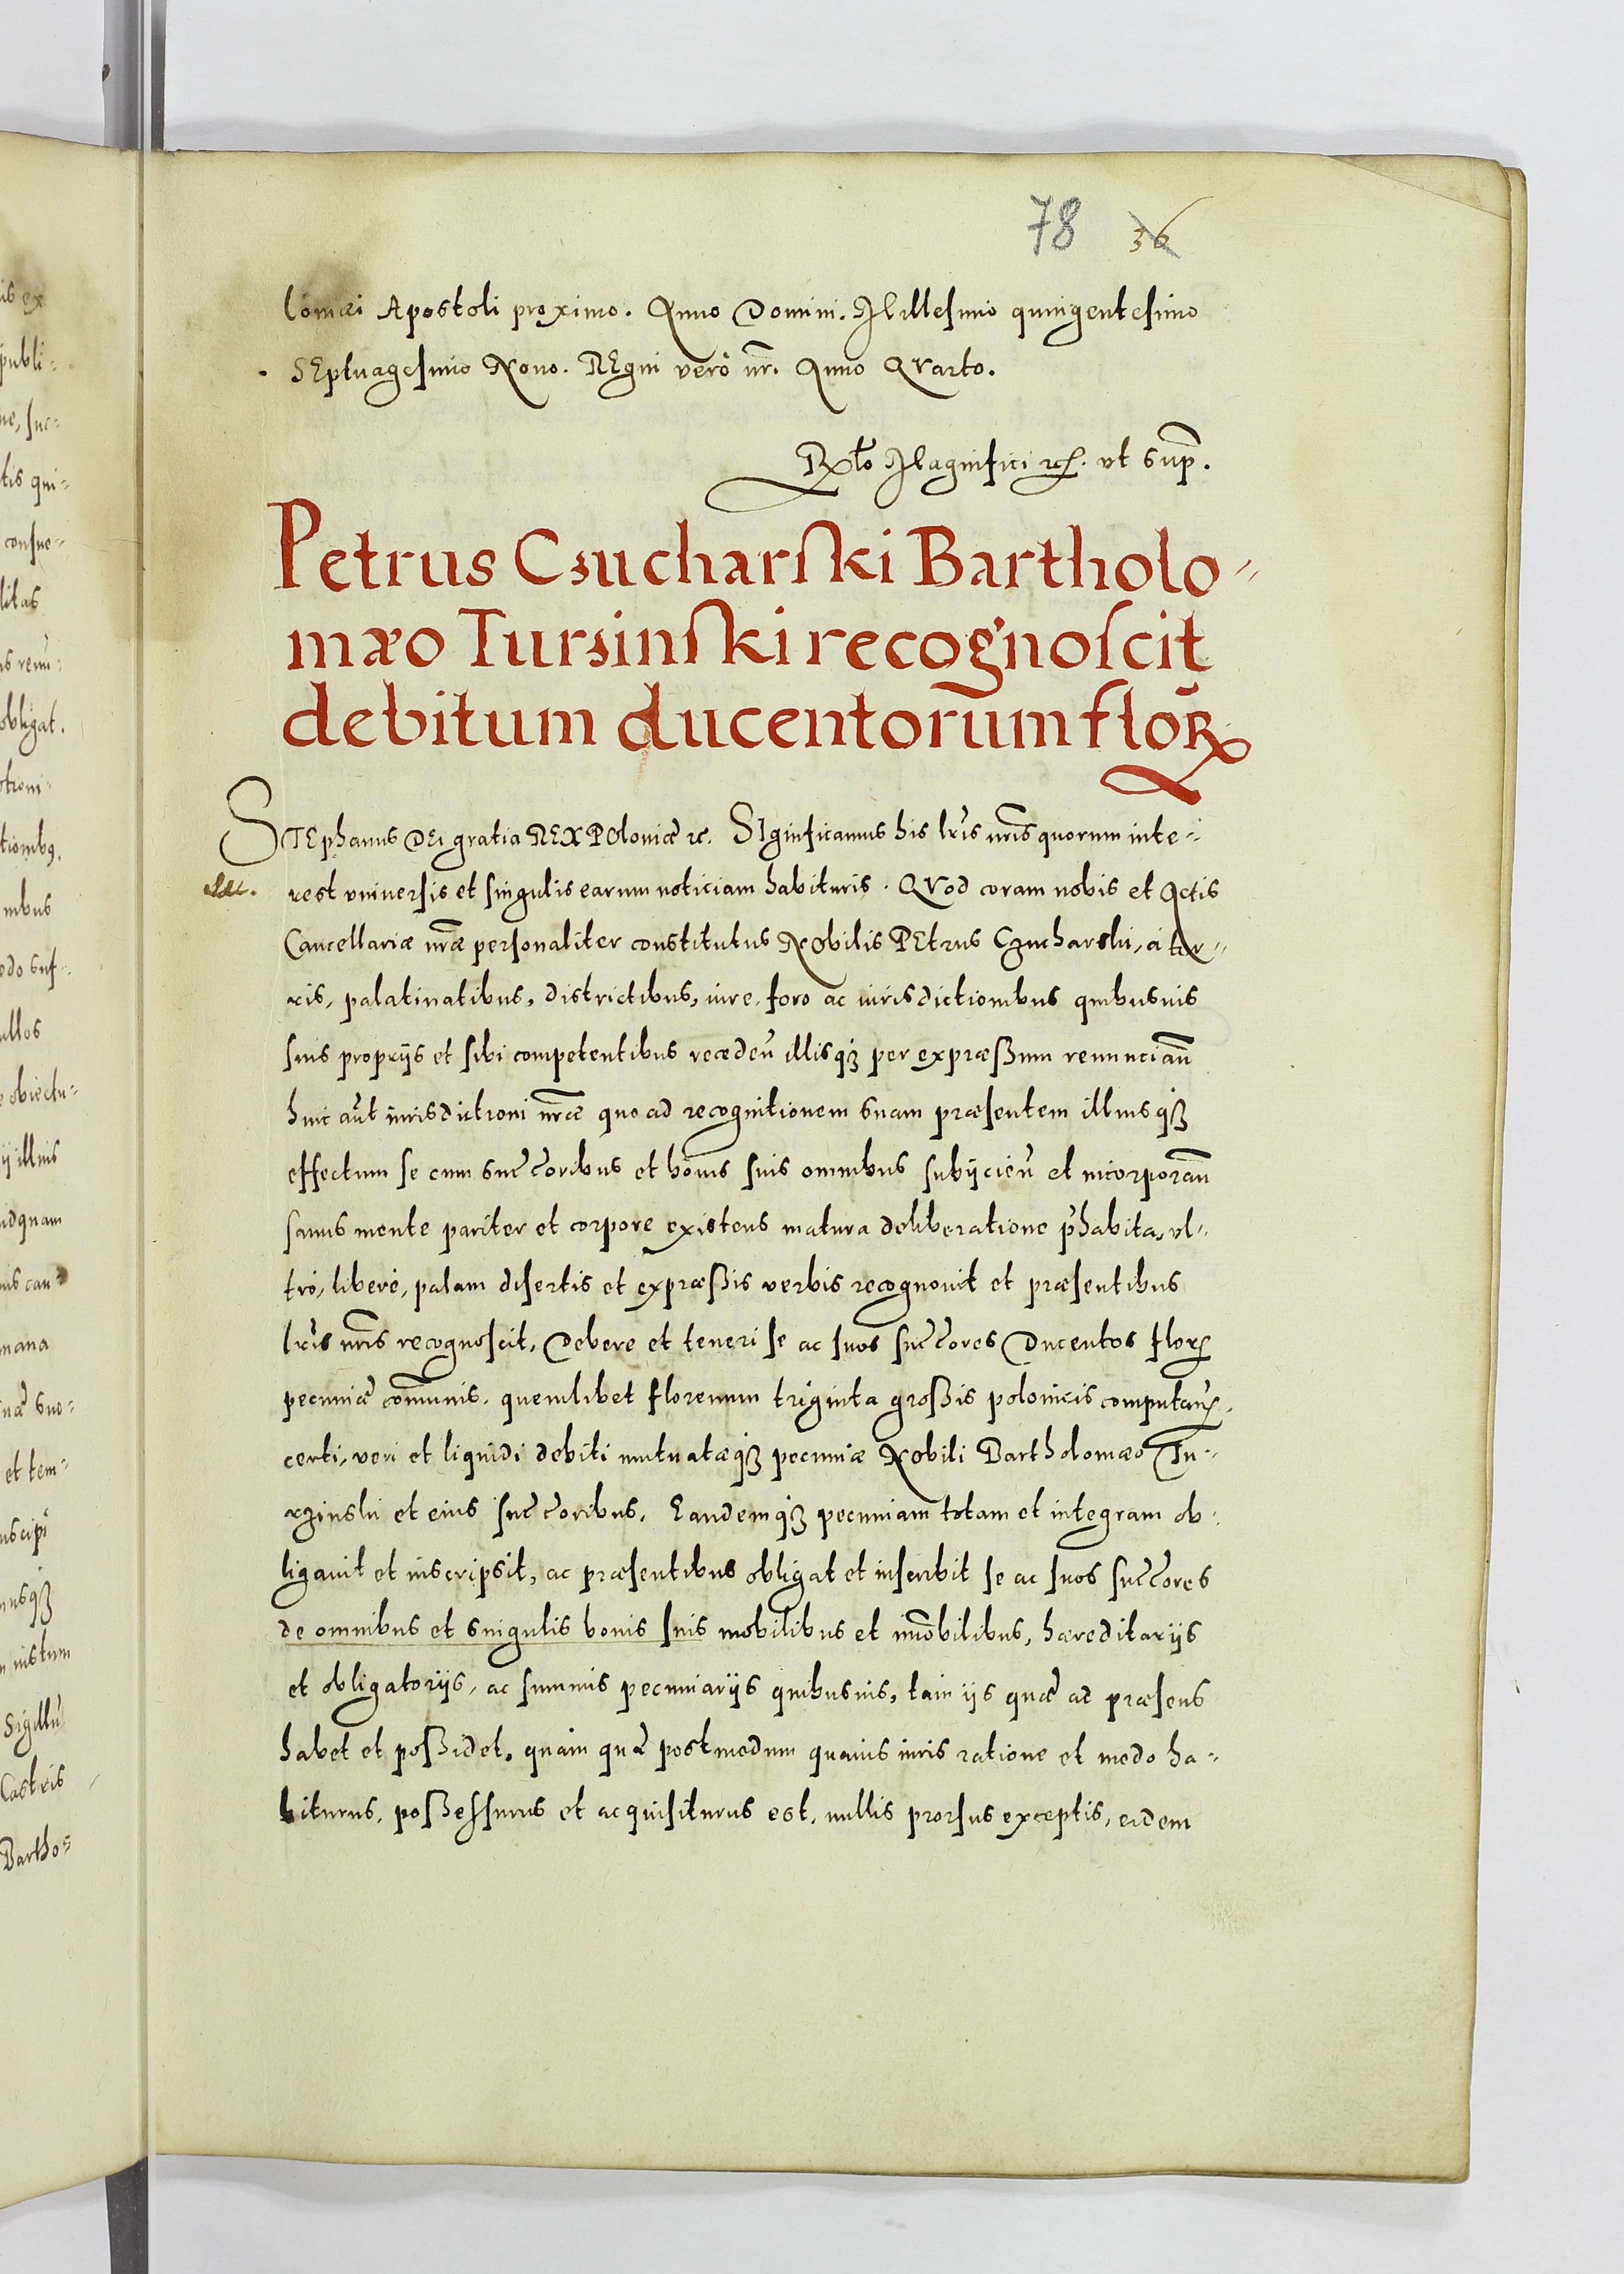 78 36
lomæi Apostoli proximo. Anno Domini. Millesimo quingentesimo
SEptuagesimo Nono. REgni verò nr̃. Anno QVarto.
Rlõ Magnifici etc. vt sup̃.
Petrus Czucharski Bartholo-
mæo Turzinski recognoscit
debitum ducentorum florꝝ
STEphanus DEi gratia REX POloniæ etc. SIgnificamus his lr̃is nr̃is quorum inte-
rest vniuersis et singulis earum noticiam habituris. QVod coram nobis et Actis
Cancellariæ nr̃æ personaliter constitutus NObilis PEtrus Czucharski, à ter-
ris, palatinatibus, districtibus, iure, foro ac iurisdictionibus quibusuis
suis proprijs et sibi competentibus recedeñ illisqꝫ per expræßum renunciañ
huic aũt iurisdictioni nr̃æ quo ad recognitionem suam præsentem illiusqꝫ
effectum se cum succ̃oribus et bonis suis omnibus subijcieñ et incorporañ
sanus mente pariter et corpore existens matura deliberatione p̃habita, vl-
trò, liberè, palam disertis et expræßis verbis recognouit et præsentibus
lr̃is nr̃is recognoscit, Debere et teneri se ac suos succ̃ores Ducentos florꝝ
pecuniæ com̃unis, quemlibet florenum triginta großis polonicis computañ,
certi, veri et liquidi debiti mutuatæqꝫ pecuniæ NObili Bartholomæo Tu-
rzinski et eius succ̃oribus. Eandemqꝫ pecuniam totam et integram ob-
ligauit et inscripsit, ac præsentibus obligat et inscribit se ac suos succ̃ores
de omnibus et singulis bonis suis mobilibus et im̃obilibus, hæreditarijs
et obligatorijs, ac summis pecuniarijs quibusuis, tam ijs quæ ad præsens
habet et poßidet, quàm quæ postmodum quauis iuris ratione et modo ha-
biturus, poßessurus et acquisiturus est, nullis prorsus exceptis, eidem